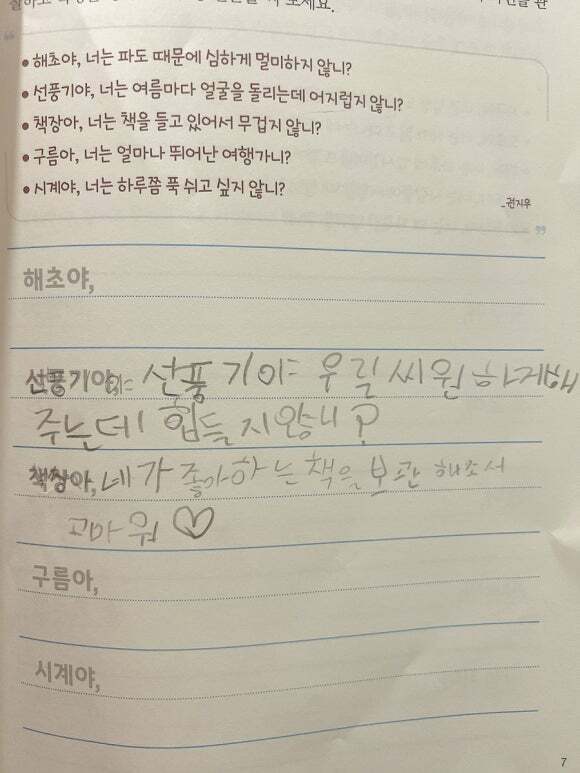 • 해초야, 너는 파도 때문에 심하게 멀미하지 않니?
• 선풍기야, 너는 여름마다 얼굴을 돌리는데 어지럽지 않니?
• 책장아, 너는 책을 들고 있어서 무겁지 않니?
• 구름아, 너는 얼마나 뛰어난 여행가니?
• 시계야, 너는 하루쯤 푹 쉬고 싶지 않니?
-권지우
해초야,
선풍기야, 선풍기야 우릴 씨원하게해
주는데 힘들지않니?
책장아, 내가 좋아하는 책을 보관해조서
고마워 ♡
구름아,
시계야,
7